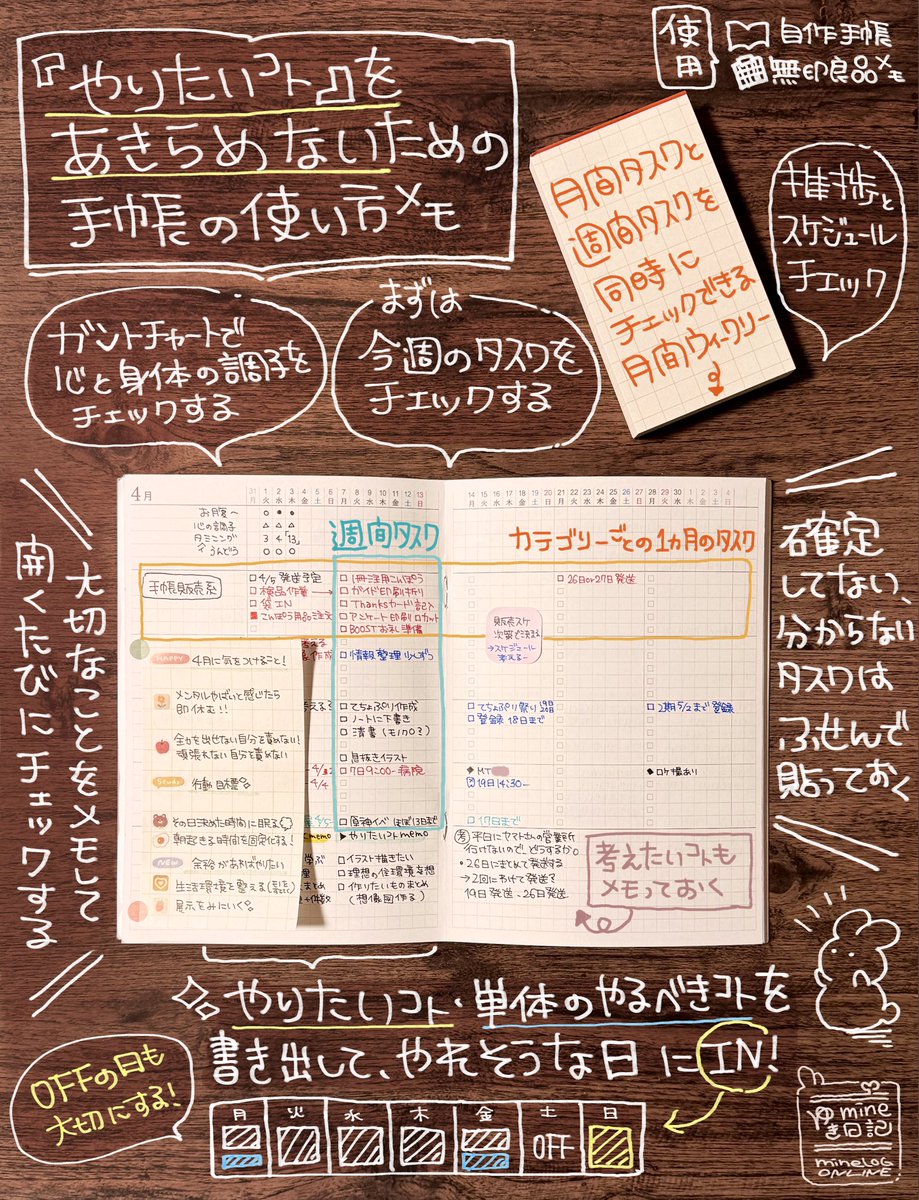 『やりたいコト』を
あきらめないための
手帳の使い方メモ
使用
自作手帳
無印良品メモ
月間タスクと
週間タスクを
同時に
チェックできる
月間ウィークリー
進捗と
スケジュール
チェック
ガントチャートで
心と身体の調子を
チェックする
まずは
今週のタスクを
チェックする
大切なことをメモして
開くたびにチェックする
確定
してない、
分からない
タスクは
ふせんで
貼っておく
4月
31 1 2 3 4 5 6 7 8 9 10 11 12 13
月 火 水 木 金 土 日 月 火 水 木 金 土 日
14 15 16 17 18 19 20 21 22 23 24 25 26 27 28 29 30 1 2 3 4
月 火 水 木 金 土 日 月 火 水 木 金 土 日 月 火 水 木 金 土 日
お腹〜
心の調子 △ △ △
タミニング 3 4 13
うんどう ○ ○ ○
週間タスク
カテゴリーごとの1ヵ月のタスク
手帳販売系
4/5 発送予定
検品作業
袋IN
こんぽう用品ご注文
1冊注用こんぽう
ガイド印刷折り
Thanksカード記入
アンケート印刷 カット
BOOSTお礼準備
26日or27日発送
販売スケ
次第で決まる
→スケジュール
考える〜
情報整理 少しずつ
てちょぷり作成
ノートに下書き
清書(モノクロ?)
息抜きイラスト
7日9:00-病院
原神イベ ほぼ13日まで
やりたいコトmemo
イラスト描きたい
理想の住環境妄想
作りたいものまとめ
(想像図作る)
てちょぷり祭り 19日 20日
登録 18日まで
MT
19日14:30-
17日まで
2期5/2まで登録
ロケ撮あり
考 平日にヤマトさんの営業所
行けないので、どうするか。
・26日にまとめて発送する
→2回にわけて発送?
19日発送・26日発送
考えたいコトも
メモっておく
HAPPY 4月に気をつけること!
メンタルやばいと感じたら
即休む!!
全力を出せない自分を責めない!
頑張れない自分を責めない
Study 行動目標
その日決めた時間に眠る
朝起きる時間を固定化する!
NEW 余裕があればやりたい
生活環境を整える
展示をみにいく
やりたいコト・単体のやるべきコトを
書き出して、やれそうな日にIN!
OFFの日も
大切にする!
月 火 水 木 金 土 日
OFF
mine
ゆき日記
mineLOG
ONLINE